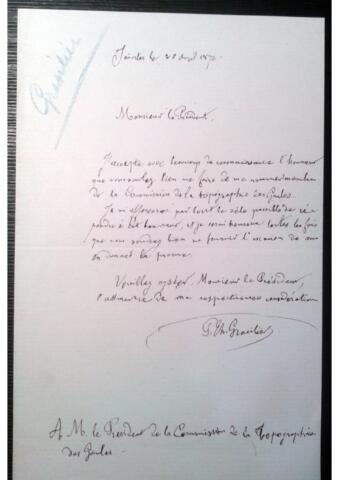 Grasilier
Saintes le 28 avril 1870
Monsieur le Président,
J'accepte avec beaucoup de reconnaissance l'honneur
que vous voulez bien me faire de me nommer membre
de la Commission de la topographie des Gaules.
Je m'efforcerai par tout le zèle possible de ré-
pondre à cet honneur, et je serai heureux toutes les fois
que vous voudrez bien me fournir l'occasion de vous
en donner la preuve.
Veuillez agréer, Monsieur le Président,
l'assurance de ma respectueuse considération
P. Th. Grasilier
A M. le Président de la Commission de la Topographie
des Gaules.